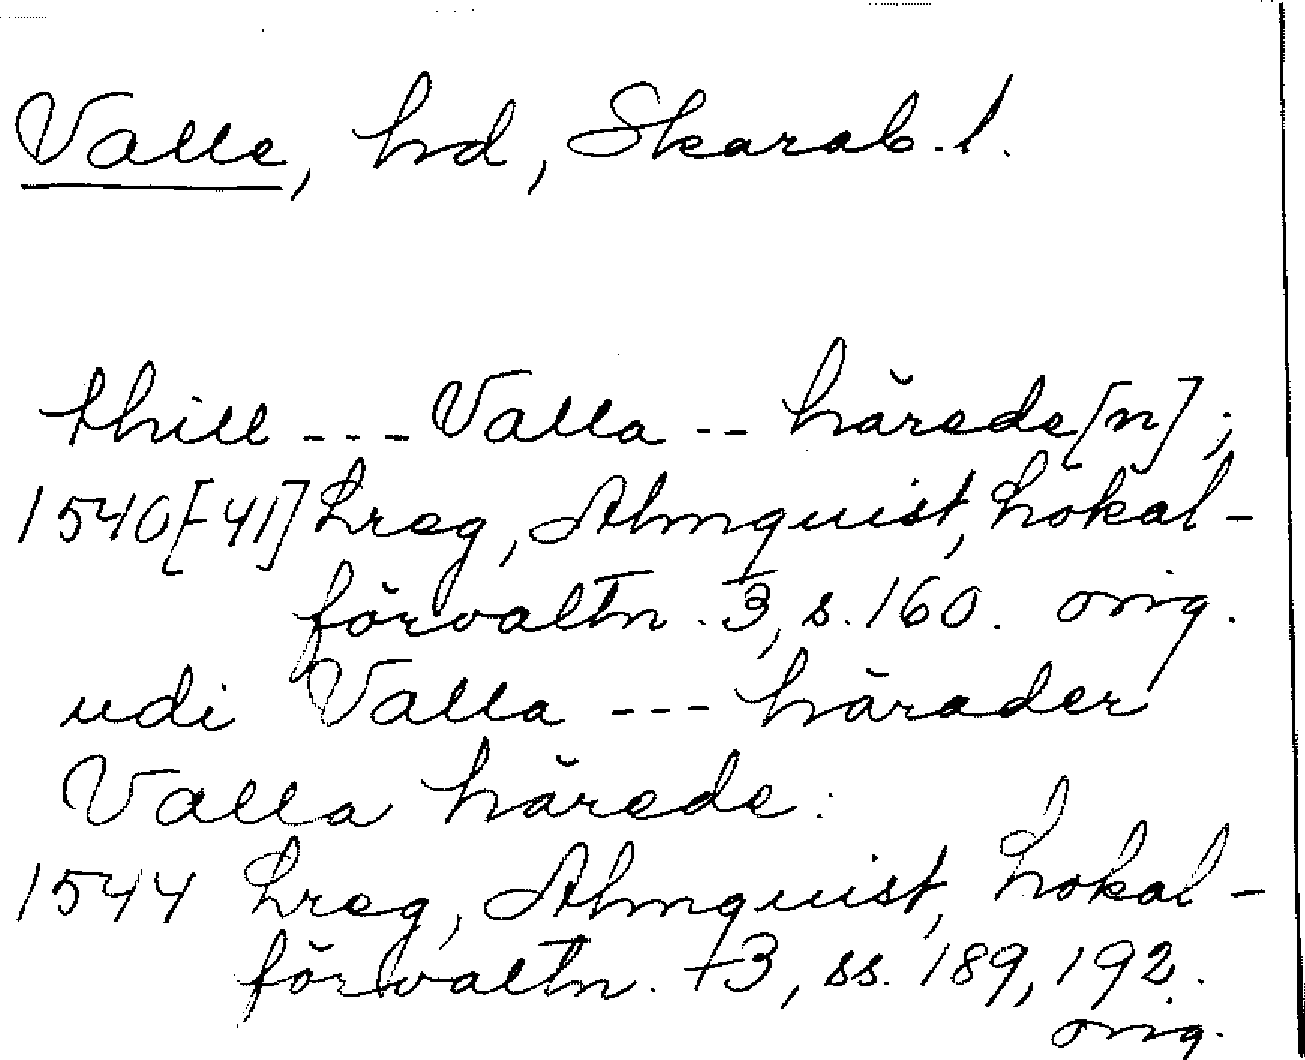 Valle, hd, Skarab. l.
thill --- Valla -- härede[n];
1540[-41] Lreg, Almquist, Lokal-
förvaltn. 3, s. 160. orig.
udi Valla --- härader
Valla härede:
1544 Lreg, Almquist, Lokal-
förvaltn. 3, ss. 189, 192.
orig.